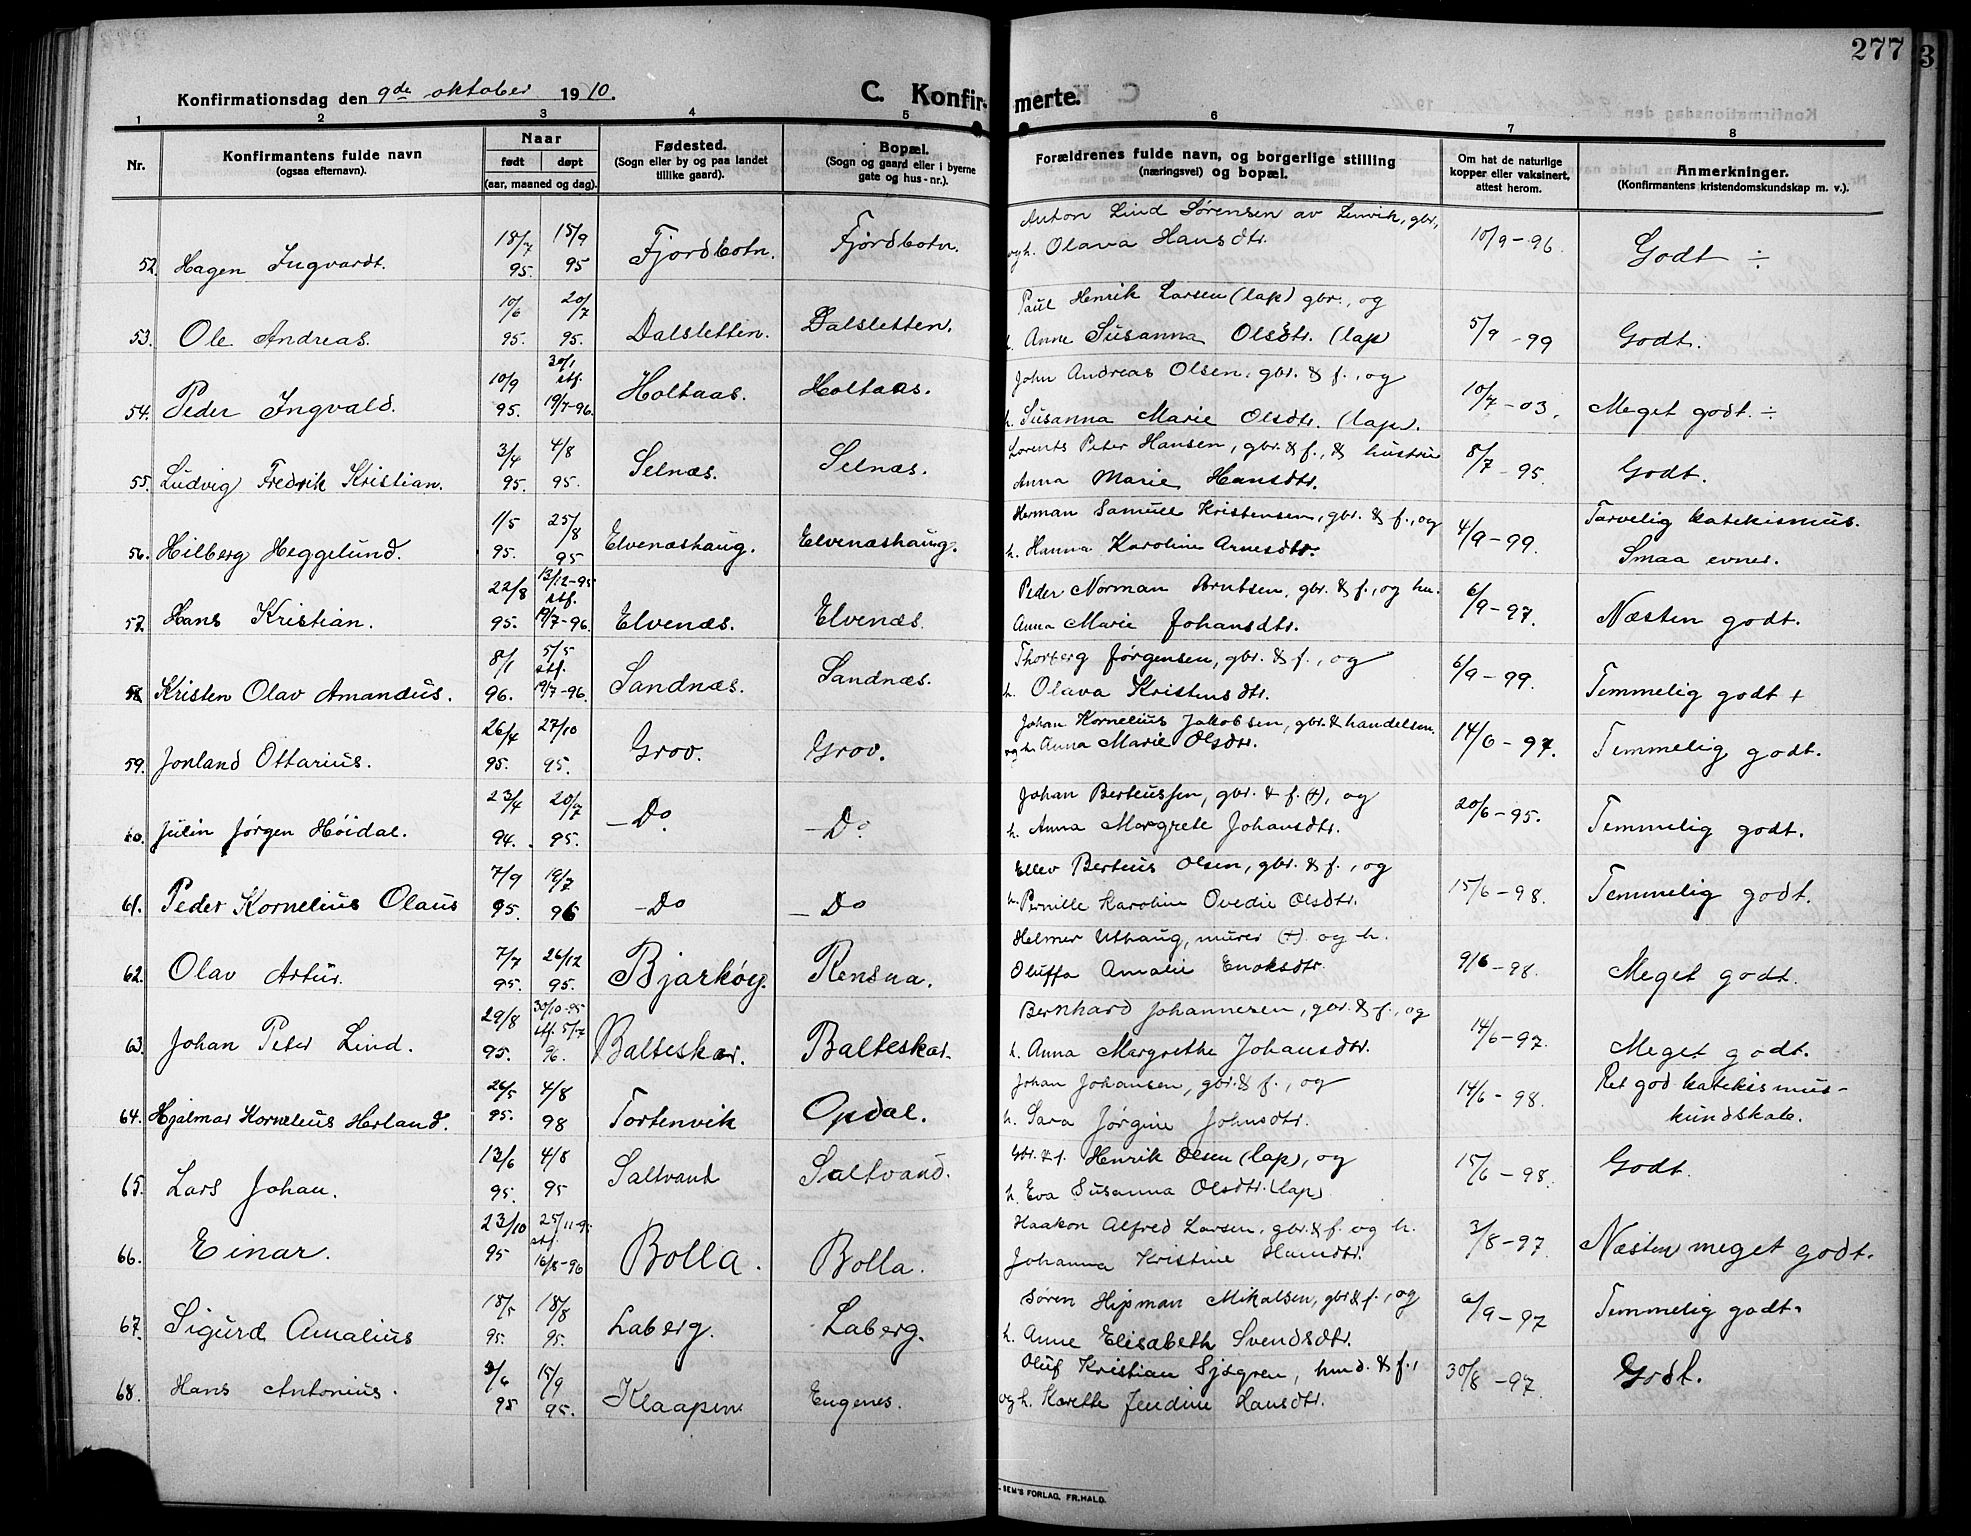 277
3
Konfirmationsdag den 9de oktober 1910.
C. Konfirmerte.
1 2 3 4 5 6 7 8
Nr.
Konfirmantens fulde navn
(ogsaa efternavn).
Naar
født døpt
(aar, maaned og dag).
Fødested.
(Sogn eller by og paa landet
tillike gaard).
Bopæl.
(Sogn og gaard eller i byerne
gate og hus-nr.).
Forældrenes fulde navn, og borgerlige stilling
(næringsvei) og bopæl.
Om hat de naturlige
kopper eller vaksinert,
attest herom.
Anmerkninger.
(Konfirmantens kristendomskundskap m. v.).
52. Hagen Ingvardt. 18/7 95. 15/9 95 Fjordbotn. Fjordbotn. Anton Lind Sørensen av Lenvik, gbr,
og h. Olava Hansdtr. 10/9-96 Godt ÷
53. Ole Andreas. 10/6 95. 20/7 95. Dalsletten. Dalsletten. Paul Henrik Larsen (lap) gbr., og
h. Anne Susanna Olsdtr. (lap) 5/9-99 Godt.
54. Peder Ingvald. 10/9 95. 30/1 stf. 19/7-96. Holtaas. Holtaas. John Andreas Olsen, gbr. & f., og
h. Susanna Marie Olsdtr. (lap). 10/7-03. Meget godt. ÷
55. Ludvig Fredrik Kristian. 3/4 95. 4/8 95. Selnæs. Selnæs. Lorents Peter Hansen, gbr. & f., & hustru
Anna Marie Hansdtr. 8/7-95. Godt.
56. Hilberg Heggelund. 1/5 95. 25/8 95 Elvenæshaug. Elvenæshaug. Herman Samuel Kristensen, gbr. & f., og
h. Hanna Karoline Arnesdtr. 4/9-99. Tarvelig katekismus.
Smaa evner.
57. Hans Kristian. 22/8 95. 13/12-95 stf. 19/7-96. Elvenæs. Elvenæs. Peder Norman Arntsen, gbr. & f., og hu.
Anna Marie Johansdtr. 6/9-97. Næsten godt.
58. Kristen Olav Amandus. 8/1 96. 5/5 stf. 19/7-96. Sandnæs. Sandnæs. Thorberg Jørgensen, gbr. & f., og
h. Olava Kristensdtr. 6/9-99. Temmelig godt +
59. Jonland Ottarius. 26/4 95. 27/10 95. Grov. Grov. Johan Kornelius Jakobsen, gbr. & handelsm.
og h. Anna Marie Olsdtr. 14/6-97. Temmelig godt.
60. Julin Jørgen Höidal. 23/4 94. 20/7 95. -Do -Do Johan Berteussen, gbr. & f. (+), og
h. Anna Margrete Johansdtr. 20/6-95. Temmelig godt.
61. Peder Kornelius Olaus 7/9 95. 19/7 96 -Do -Do Ellev Berteus Olsen, gbr. & f., og
h. Pernille Karoline Ovedie Olsdtr. 15/6-98. Temmelig godt.
62. Olav Artur. 7/7 95. 26/12 95. Bjarköy. Rensaa. Helmer Uthaug, murer (+). og h.
Oluffa Amalie Enoksdtr. 9/6-98. Meget godt.
63. Johan Peter Lind. 29/8 95. 30/10-95 stf. 5/7 96. Balteskar. Balteskar. Bernhard Johannesen, gbr. & f., og
h. Anna Margrethe Johansdtr. 14/6-97. Meget godt.
64. Hjalmar Kornelius Herland. 26/5 95. 4/8 98 Tortenvik Opdal. Johan Johansen, gbr. & f., og
h. Sara Jørgine Johnsdtr. 14/6-98. Ret god katekismus-
kundskab.
65. Lars Johan. 13/6 95. 4/8 95 Saltvand Saltvand. Gbr. & f. Henrik Olsen (lap), og
h. Eva Susanna Olsdtr. (lap) 15/6-98. Godt.
66. Einar. 23/10 95 25/11-95 stf. 16/8-96 Bolla. Bolla. Haakon Alfred Larsen, gbr. & f. og h.
Johanna Kristine Hansdtr. 3/8-97. Næsten meget godt.
67. Sigurd Amalius 18/5 95. 18/8 95. Laberg. Laberg. Søren Hipman Mikalsen, gbr. & f., og
h. Anne Elisabeth Svendsdtr. 6/9-97 Temmelig godt.
68. Hans Antonius. 3/6 95 15/9 95. Klaapen Engenes. Oluf Kristian Sjøgren, hmd. & f.,
og h. Karette Jendine Hansdtr. 30/8-97. Godt.
SEM'S FORLAG, FR.HALD.